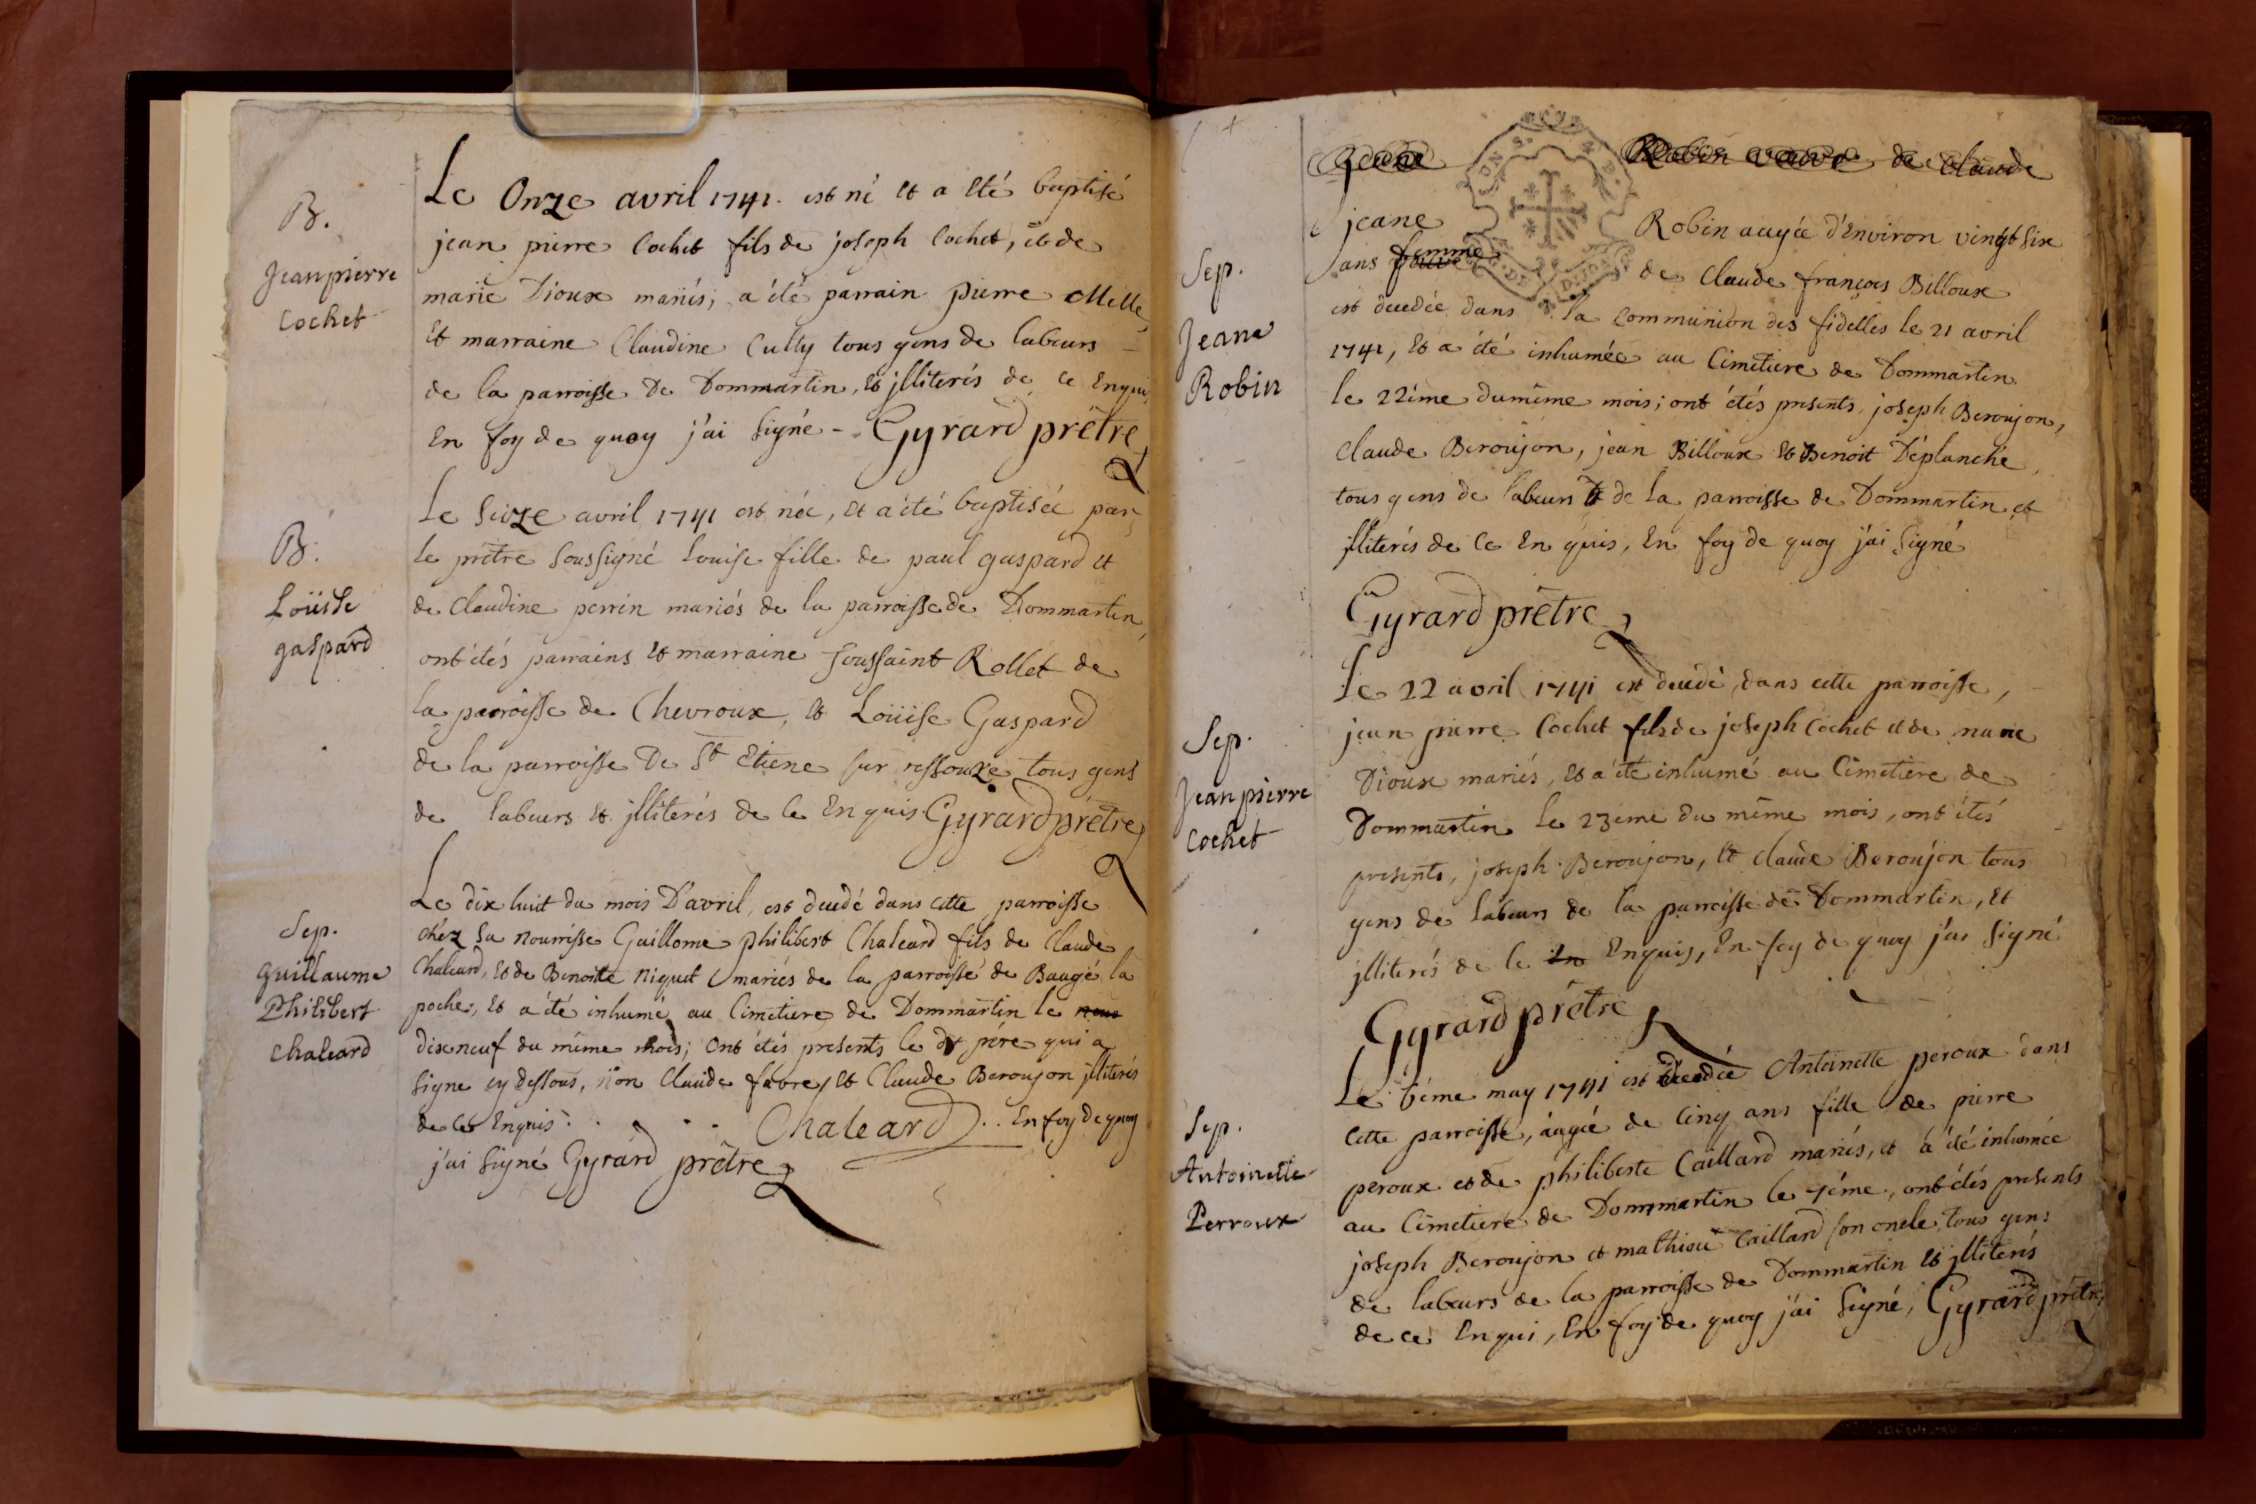 B.
Jean pierre
Cochet
Le Onze avril 1741. est né et a été baptisé
jean pierre Cochet fils de joseph Cochet, et de
marie Dioux mariés, a été parrain pierre Mille,
Et marraine Claudine Cully tous gens de labeurs
de la parroisse De Dommartin, et jlliterés de ce Enquis,
En foy de quoy j'ai signé - Gyrard prêtre
B.
Loüise
gaspard
Le Seize avril 1741 est née, et a été baptisée par
le prêtre soussigné Louise fille de paul gaspard et
de Claudine perrin mariés de la parroisse de Dommartin,
ont étés parrains et marraine Toussaint Rollet de
la parroisse de Chevroux, et Loüise Gaspard
de la parroisse De St Etiene sur ressouze tous gens
de labeurs et jlliterés de ce Enquis Gyrard prêtre
Sep.
Guillaume
Philibert
Chaleard
Le dix huit du mois D'avril, est decedé dans cette parroisse
chez sa nourrisse Guillome philibert Chaleard fils de Claude
Chaleard, et de Benoitte niquet mariés de la parroisse de Baugé la
poche, Et a été inhumé au Cimetiere de Dommartin le neuf
dixneuf du même mois; Ont étés presents le dt pére qui a
signe cy dessous, non Claude favre, et Claude Beroujon jlliterés
de ce Enquis. Chaleard .. En foy de quoy
j'ai signé Gyrard prêtre
jeane Robin veuve de Claude
Sep.
Jeane
Robin
jeane Robin augée d'Environ vingt six
ans femme de Claude françois Billoux
est decedée dans la Communion des fidelles le 21 avril
1741, Et a été inhumée au Cimetiere de Dommartin
le 22éme du même mois; ont étés presents, joseph Beroujon,
Claude Beroujon, jean Billoux et Benoit Déplanche,
tous gens de labeurs de la parroisse de Dommartin et
jlliterés de ce Enquis, En foy de quoy j'ai signé
Gyrard prêtre
Sep.
Jean pierre
Cochet
Le 22 avril 1741 est decedé, dans cette parroisse,
jean pierre Cochet fils de joseph Cochet et de marie
Dioux mariés, et a été inhumé au Cimetiere de
Dommartin le 23éme du même mois, ont étés
presents, joseph Beroujon, et claude Beroujon tous
gens de labeurs de la parroisse de Dommartin, Et
jlliterés de ce En Enquis, En foy de quoy j'ai signé
Gyrard prêtre
Sep.
Antoinette
Perroux
Le 6éme may 1741 est decedée Antoinette peroux dans
cette parroisse, áugée de Cinq ans fille de pierre
peroux et de philiberte Caillard mariés, et a été inhumée
au Cimetiere de Dommartin le 7éme, ont étés presents
joseph Beroujon et mathieu Caillard son oncle tous gens
de labeurs de la parroisse de Dommartin Et jlliterés
de ce Enqui, En foy de quoy j'ai signé, Gyrard prêtre